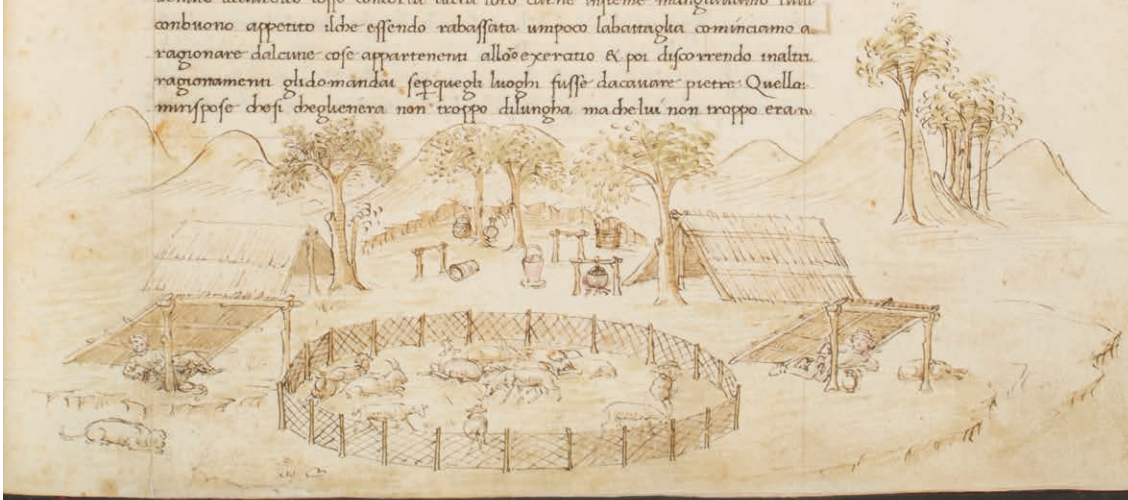 conbuono appetito ilche essendo rabassata umpoco labattaglia cominciamo a
ragionare dalcune cose appartenenti alloro exercitio & poi discorrendo inaltri
ragionamenti glidomandai se perquegli luoghi fusse dacavare pietre Quello
mirispose chesi chegliene era non troppo dilungha ma che lui non troppo era